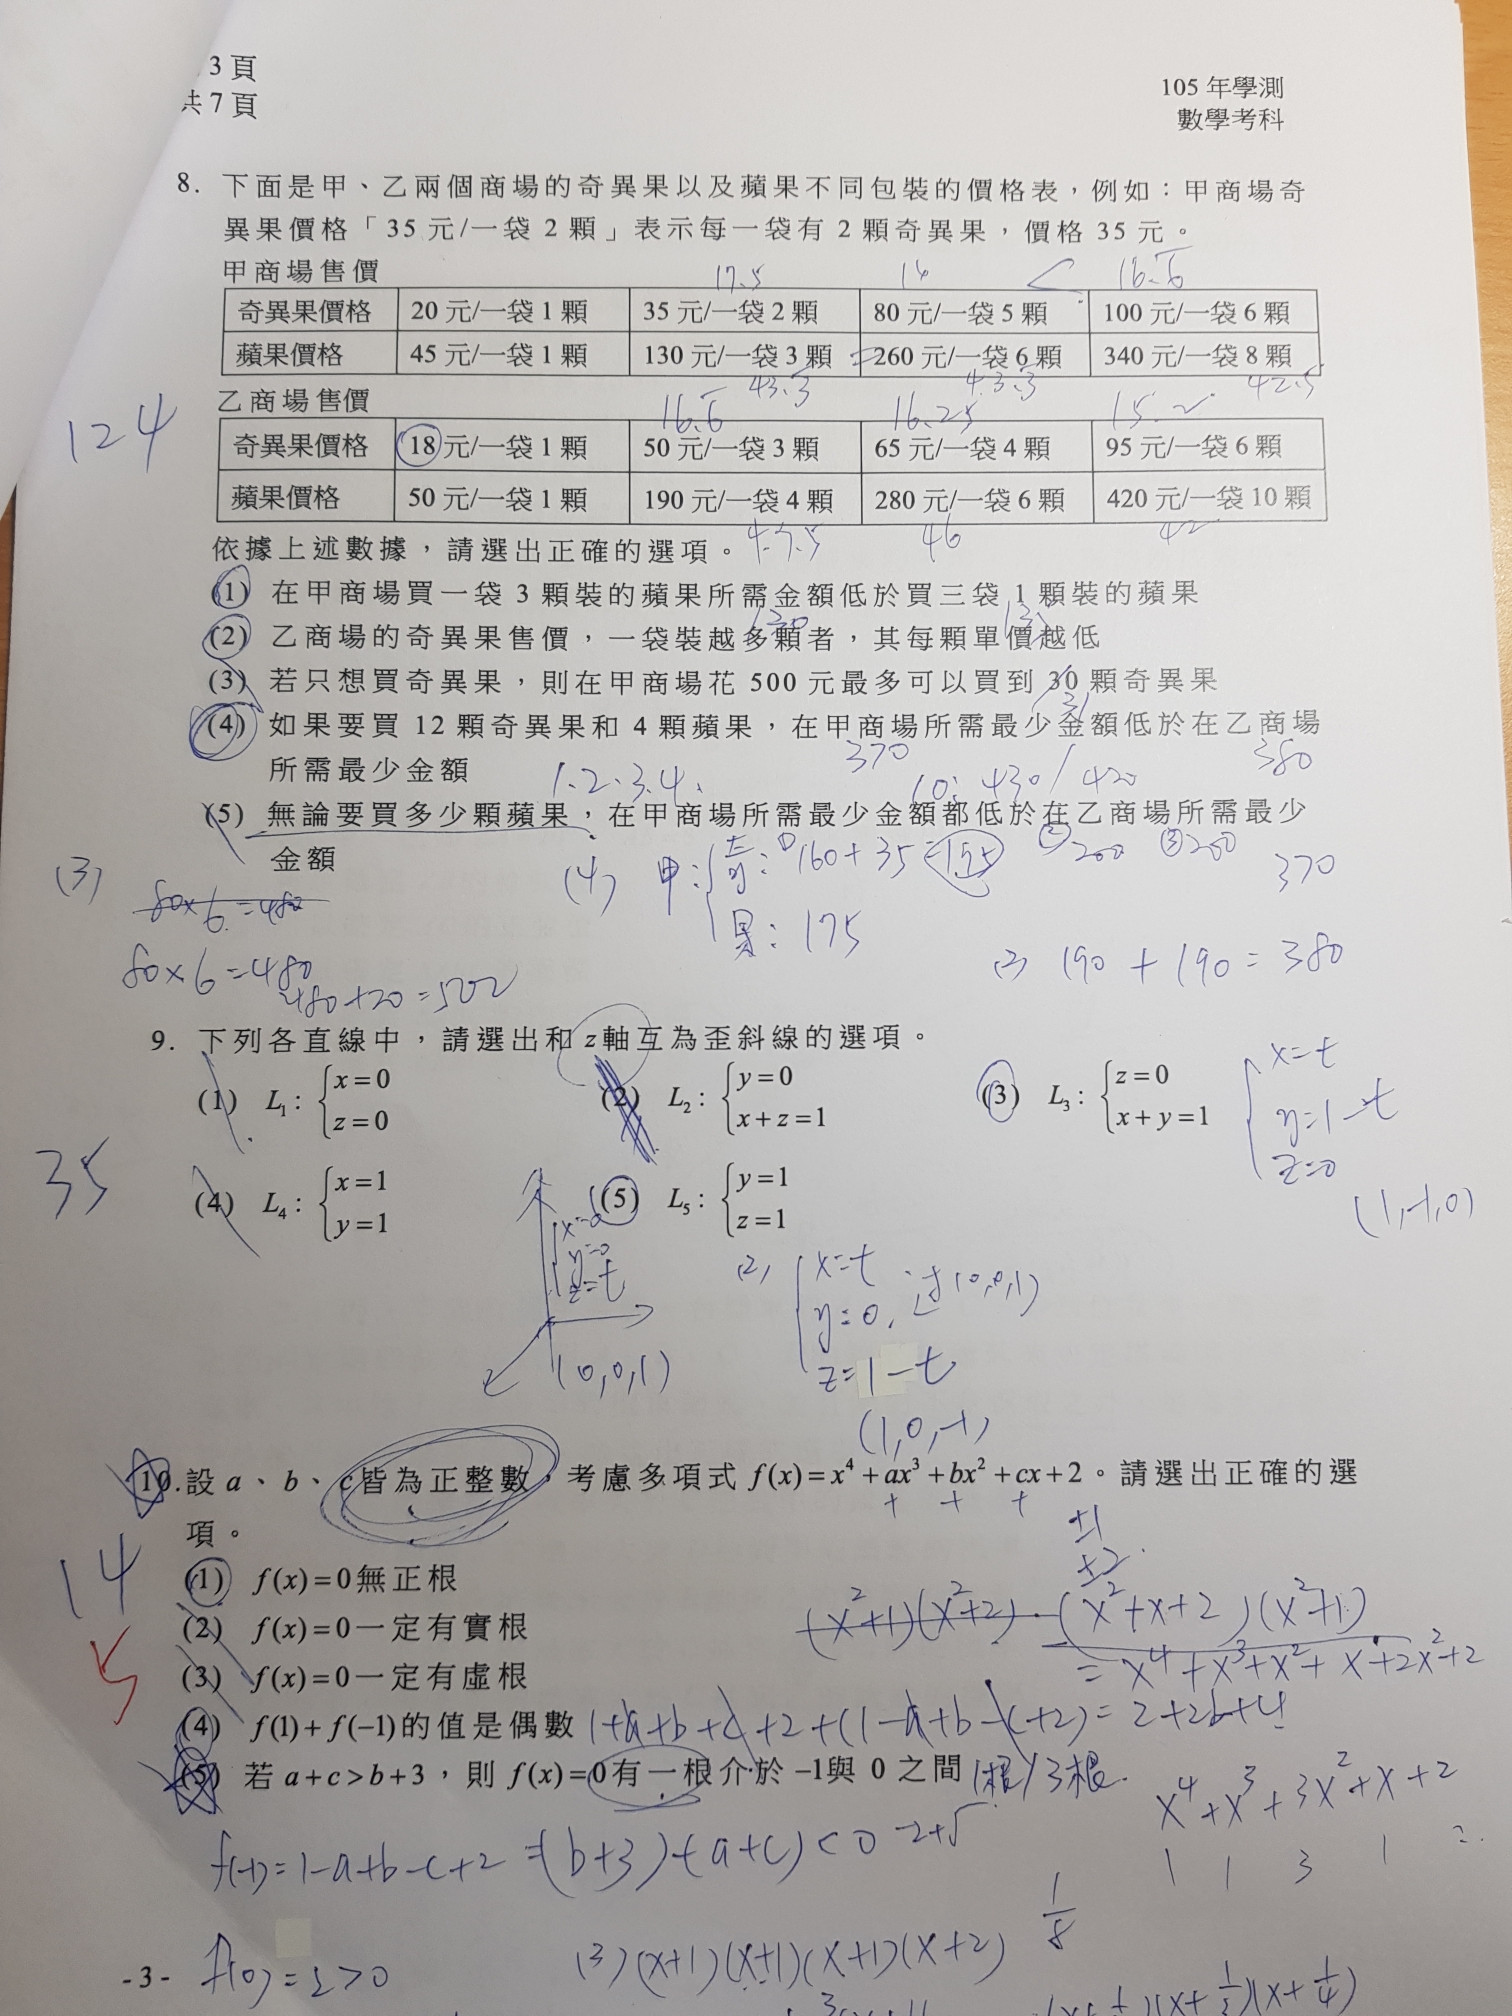 3 頁
共 7 頁
105 年學測
數學考科
8. 下面是甲、乙兩個商場的奇異果以及蘋果不同包裝的價格表，例如：甲商場奇
異果價格「35 元/一袋 2 顆」表示每一袋有 2 顆奇異果，價格 35 元。
甲商場售價
17.5 16 < 16.6
奇異果價格 20 元/一袋 1 顆 35 元/一袋 2 顆 80 元/一袋 5 顆 100 元/一袋 6 顆
蘋果價格 45 元/一袋 1 顆 130 元/一袋 3 顆 = 260 元/一袋 6 顆 340 元/一袋 8 顆
43.3 43.3 42.5
乙商場售價
124
16.6 16.25
奇異果價格 18 元/一袋 1 顆 50 元/一袋 3 顆 65 元/一袋 4 顆 95 元/一袋 6 顆
蘋果價格 50 元/一袋 1 顆 190 元/一袋 4 顆 280 元/一袋 6 顆 420 元/一袋 10 顆
47.5 46 42
依據上述數據，請選出正確的選項。
(1) 在甲商場買一袋 3 顆裝的蘋果所需金額低於買三袋 1 顆裝的蘋果
130
(2) 乙商場的奇異果售價，一袋裝越多顆者，其每顆單價越低
(3) 若只想買奇異果，則在甲商場花 500 元最多可以買到 30 顆奇異果
31
(4) 如果要買 12 顆奇異果和 4 顆蘋果，在甲商場所需最少金額低於在乙商場
所需最少金額
370 380
1.2.3.4. 10: 430/420
(5) 無論要買多少顆蘋果，在甲商場所需最少金額都低於在乙商場所需最少
金額
(3) 80×6=480
80×6=480
480+20=500
(4) 甲: 奇: ① 160+35=195 ② 200 ③ 200 370
果: 175
(2) 190+190=380
9. 下列各直線中，請選出和 z 軸互為歪斜線的選項。
(1) L₁: {x=0
z=0
(2) L₂: {y=0
x+z=1
(3) L₃: {z=0
x+y=1
x=t
y=1-t
z=0
(1,-1,0)
35
(4) L₄: {x=1
y=1
(5) L₅: {y=1
z=1
x=0
y=0
z=t
(0,0,1)
(2) x=t
y=0, 过(0,0,1)
z=1-t
(1,0,-1)
10. 設 a、b、c 皆為正整數，考慮多項式 f(x)=x⁴+ax³+bx²+cx+2。請選出正確的選
項。
+ + +
±1
±2
14
5
(1) f(x)=0 無正根
(2) f(x)=0 一定有實根
(x²+1)(x²+2) (x²+x+2)(x²+1)
(3) f(x)=0 一定有虛根
=x⁴+x³+x²+x+2x²+2
(4) f(1)+f(-1)的值是偶數 1+a+b+c+2+(1-a+b-c+2)=2+2b+4
(5) 若 a+c>b+3，則 f(x)=0 有一根介於 –1與 0 之間 1根/3根
x⁴+x³+3x²+x+2
1 1 3 1
f(-1)=1-a+b-c+2=(b+3)-(a+c)<0
f(0)=2>0
(3) (x+1)(x+1)(x+1)(x+2)
1/8
- 3 -